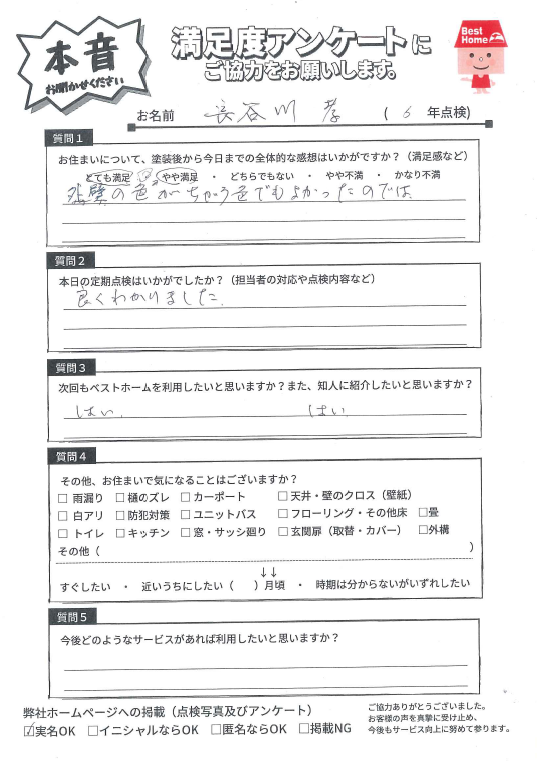 本音
お聞かせください
満足度アンケートに
ご協力をお願いします。
Best Home
お名前 長谷川 孝 ( 6 年点検)
質問1
お住まいについて、塗装後から今日までの全体的な感想はいかがですか？（満足感など）
とても満足 ・ やや満足 ・ どちらでもない ・ やや不満 ・ かなり不満
外壁の色がちがう色でもよかったのでは
質問2
本日の定期点検はいかがでしたか？（担当者の対応や点検内容など）
良くわかりました。
質問3
次回もベストホームを利用したいと思いますか？また、知人に紹介したいと思いますか？
はい。 はい
質問4
その他、お住まいで気になることはございますか？
□ 雨漏り □ 樋のズレ □ カーポート □ 天井・壁のクロス（壁紙）
□ 白アリ □ 防犯対策 □ ユニットバス □ フローリング・その他床 □畳
□ トイレ □ キッチン □ 窓・サッシ廻り □ 玄関扉（取替・カバー） □外構
その他（ ）
↓↓
すぐしたい ・ 近いうちにしたい（ ）月頃 ・ 時期は分からないがいずれしたい
質問5
今後どのようなサービスがあれば利用したいと思いますか？
弊社ホームページへの掲載（点検写真及びアンケート）
☑実名OK □イニシャルならOK □匿名ならOK □掲載NG
ご協力ありがとうございました。
お客様の声を真摯に受け止め、
今後もサービス向上に努めて参ります。